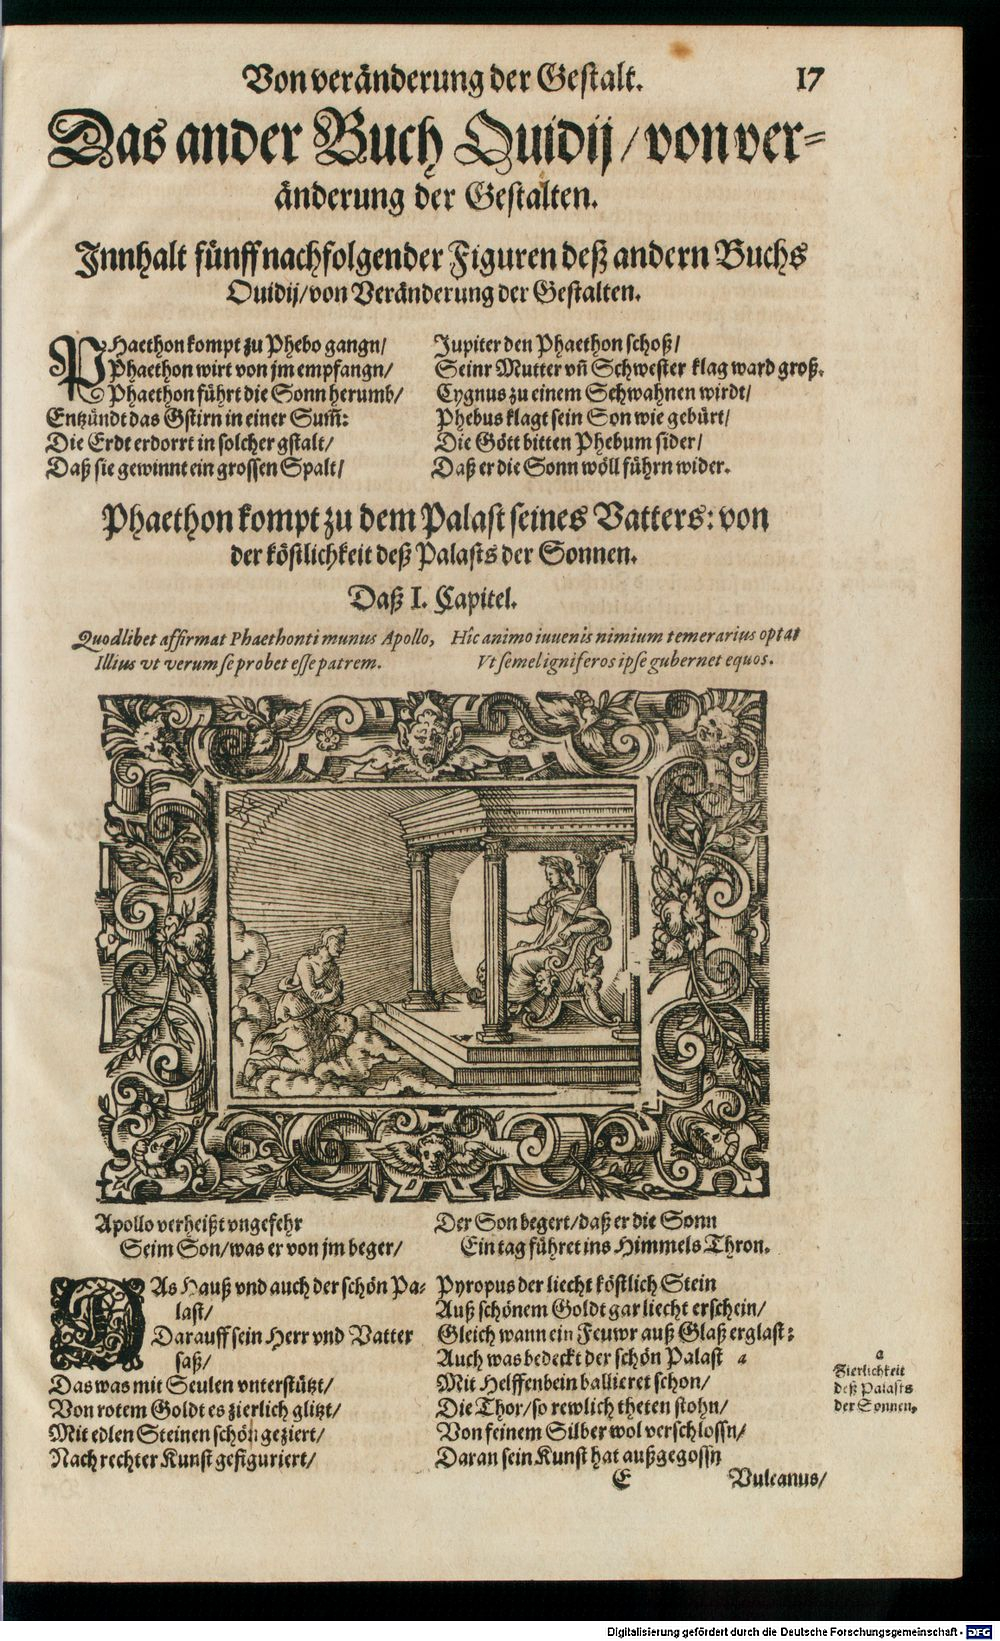 Von veränderung der Gestalt. 17
Das ander Buch Ouidij / von ver-
änderung der Gestalten.
Innhalt fünff nachfolgender Figuren deß andern Buchs
Ouidij / von Veränderung der Gestalten.
PHaethon kompt zu Phebo gangn /
Phaethon wirt von jm empfangn /
Phaethon führt die Sonn herumb /
Entzündt das Gstirn in einer Sum̃:
Die Erdt erdorrt in solcher gstalt /
Daß sie gewinnt ein grossen Spalt /
Jupiter den Phaethon schoß /
Seinr Mutter vñ Schwester klag ward groß.
Cygnus zu einem Schwahnen wirdt /
Phebus klagt sein Son wie gebürt /
Die Gött bitten Phebum sider /
Daß er die Sonn wöll führn wider.
Phaethon kompt zu dem Palast seines Vatters: von
der köstlichkeit deß Palasts der Sonnen.
Daß I. Capitel.
Quodlibet affirmat Phaethonti munus Apollo,
Illius vt verum se probet esse patrem.
Hîc animo iuuenis nimium temerarius optat
Vt semel igniferos ipse gubernet equos.
Apollo verheißt vngefehr
Seim Son / was er von jm beger /
Der Son begert / daß er die Sonn
Ein tag führet ins Himmels Thron.
DAs Hauß vnd auch der schön Pa-
last /
Darauff sein Herr vnd Vatter
saß /
Das was mit Seulen vnterstützt /
Von rotem Goldt es zierlich glitzt /
Mit edlen Steinen schön geziert /
Nach rechter Kunst gefiguriert /
Pyropus der liecht köstlich Stein
Auß schönem Goldt gar liecht erschein /
Gleich wann ein Feuwr auß Glaß erglast:
Auch was bedeckt der schön Palast a
Mit Helffenbein ballieret schon /
Die Thor / so rewlich theten stohn /
Von feinem Silber wol verschlossn /
Daran sein Kunst hat außgegossn
a
Zierlichkeit
deß Palasts
der Sonnen.
E Vulcanus /
Digitalisierung gefördert durch die Deutsche Forschungsgemeinschaft - DFG